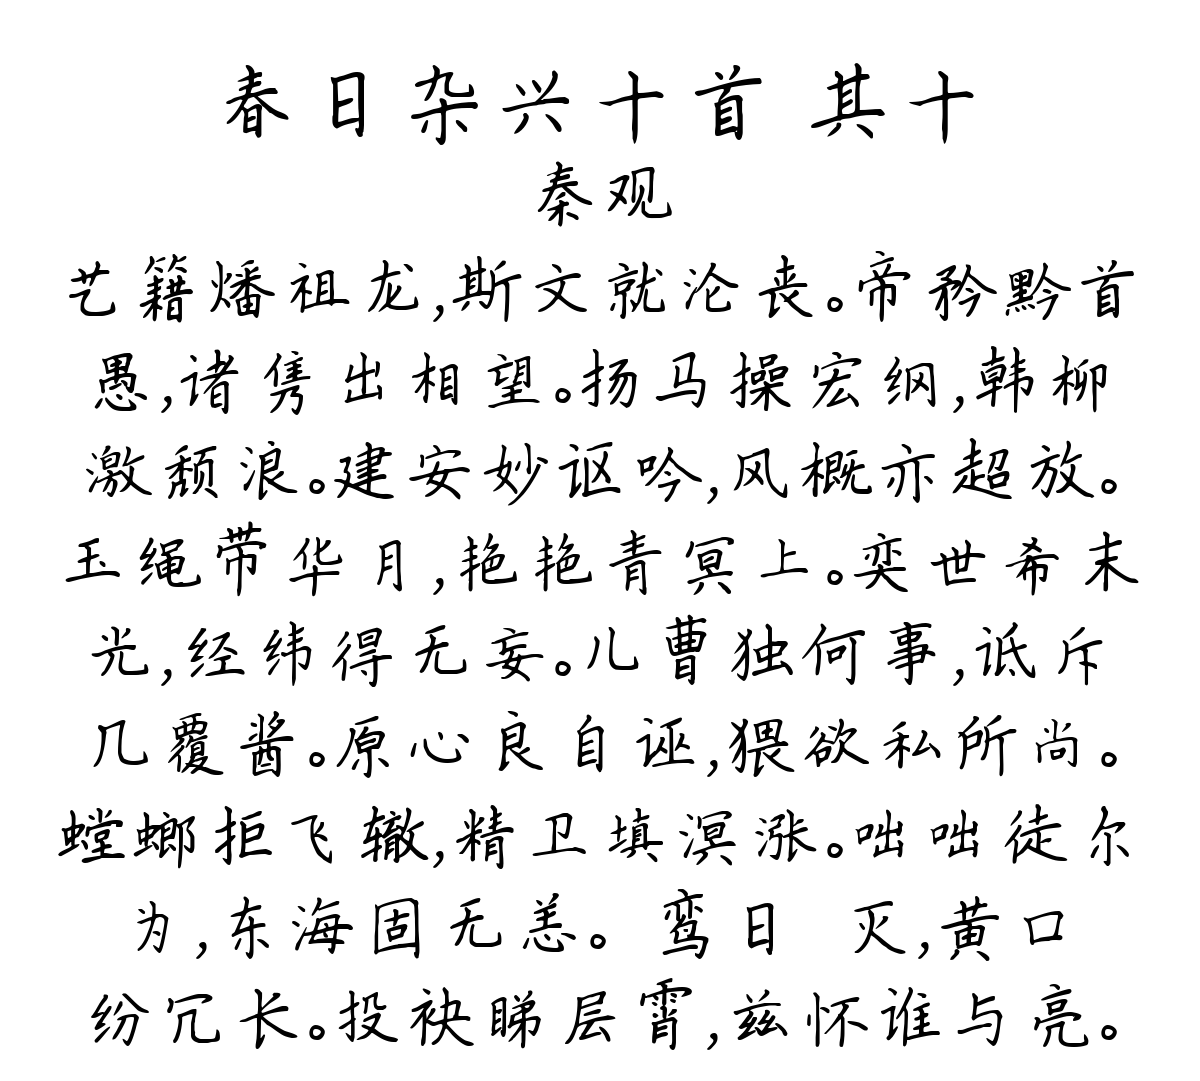 春日杂兴十首 其十
秦观
艺籍燔祖龙,斯文就沦丧。帝矜黔首
愚,诸隽出相望。扬马操宏纲,韩柳
激颓浪。建安妙讴吟,风概亦超放。
玉绳带华月,艳艳青冥上。奕世希末
光,经纬得无妄。儿曹独何事,诋斥
几覆酱。原心良自诬,猥欲私所尚。
螳螂拒飞辙,精卫填溟涨。咄咄徒尔
为,东海固无恙。 鸾日 灭,黄口
纷冗长。投袂睇层霄,兹怀谁与亮。